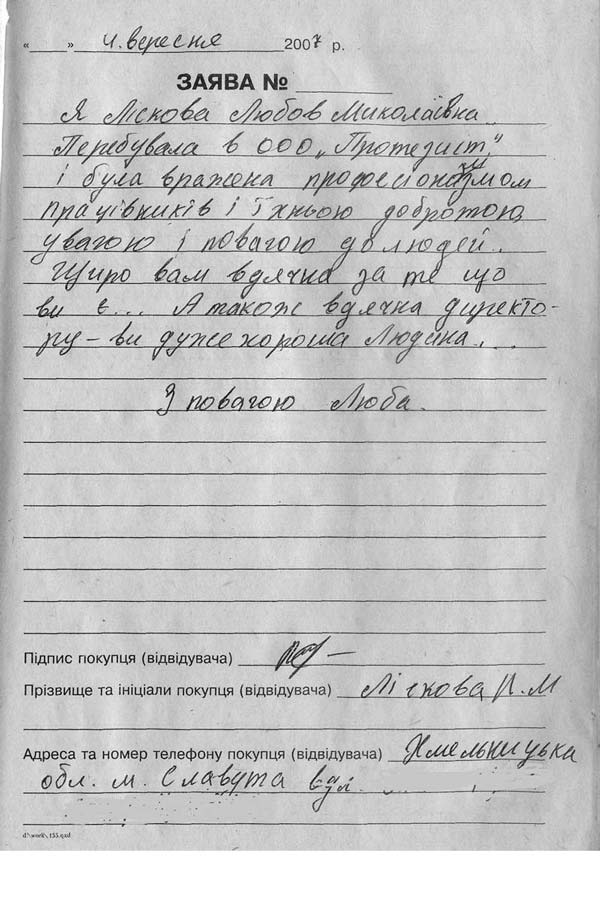 « » 4. вересня 2007 р.
ЗАЯВА № 
Я Ліскова Любов Миколаївна
Перебувала в ООО „Протезист"
і була вражена професіоналізмом
працівників і їхньою добротою,
увагою і повагою до людей.
Щиро вам вдячна за те що
ви є... А також вдячна директо-
ру – ви дуже хороша Людина...
З повагою Люба.
Підпис покупця (відвідувача)
Прізвище та ініціали покупця (відвідувача) Ліскова Л. М
Адреса та номер телефону покупця (відвідувача) Хмельницька
обл. м. Славута вул.